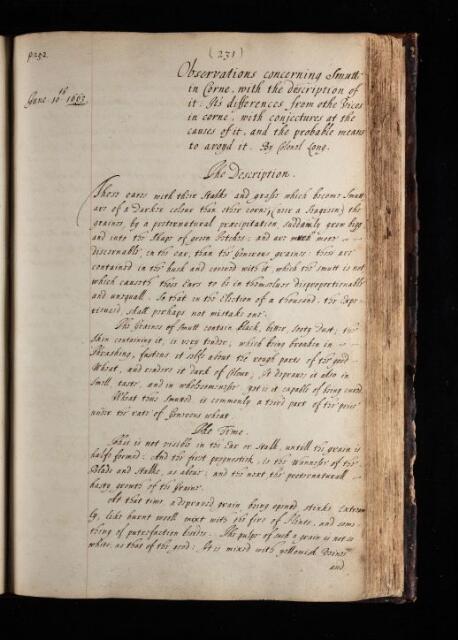 (231)
p292.
Observations concerning Smutt
in Corne, with the description of
June 10th 1663.
it: It's differences from othe Vices
in corne; with conjectures at the
causes of it, and the probable means
to avoyd it. By Colonel Long.
The Description.
Those eares with their Stalks and grasse which become Smutt
are of a Darker colour than other corne; the
graines, by a preternatural præcipitation, suddainly grow bigg
and into the Shape of green Fetches: and are much more
discernable, in the ear, than the Generous graines: these are
contained in the husk and covered with it, which the smutt is not
which causeth those Ears to be in themselves disproportionable
and unequall. So that in the Election of a thousand, the Expe-
rienced, shall perhaps not mistake one.
The Graines of Smutt contain black, bitter, sooty Dust; the
Skin containing it, is very tender, which being broaken in
Thrashing, fastens it selfe about the rough parts of the good
Wheat, and renders it dark of Colour; It depraves it also in
Smell, taste, and in wholesomenesse, yet is it capable of being cured.
Wheat thus Smutted is commonly a third part of the price
under the rate of Generous wheat.
The Time.
This is not visible in the Ear or Stalk, untill the grain is
halfe formed: And the first prognostick, is the of the
Blade and Stalke, as above: and the next the preternaturall
hasty growth of the Graine.
At that time a depraved grain, being opened, stinks Extream-
ly, like burnt wooll mixt with the fire of Flints, and some-
thing of putrefaction besides. The pulpe of such a grain is not so
white, as that of the good: It is mixed with yellowish Veines
and